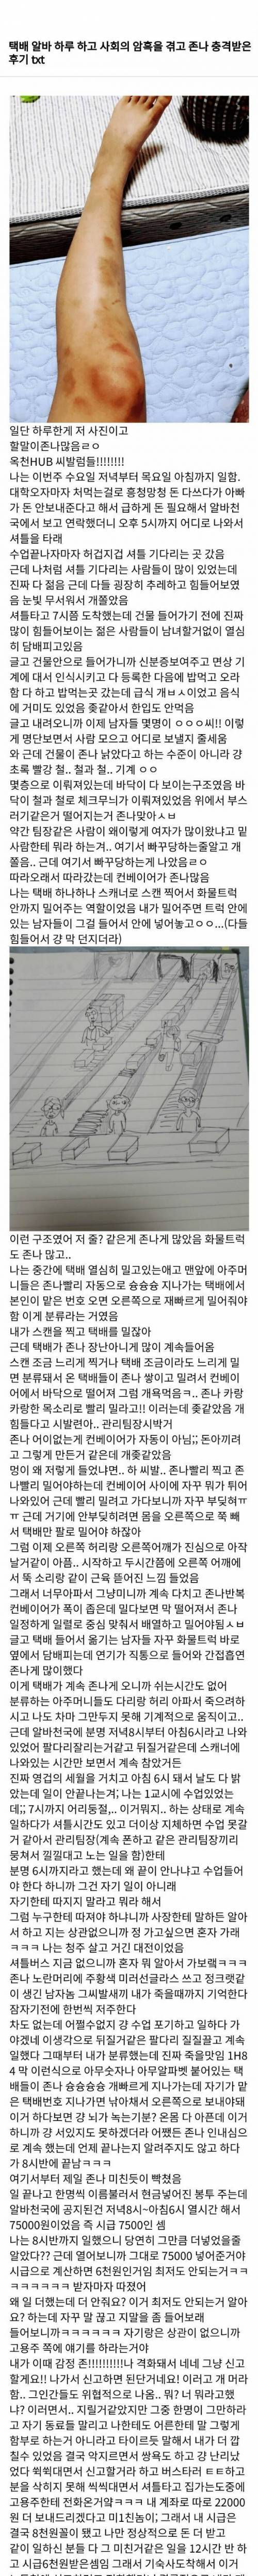 택배 알바 하루 하고 사회의 암흑을 겪고 존나 충격받은
후기 txt
일단 하루한게 저 사진이고
할말이존나많음ㄹㅇ
옥천HUB 씨발럼들!!!!!!!!
나는 이번주 수요일 저녁부터 목요일 아침까지 일함.
대학오자마자 처먹는걸로 흥청망청 돈 다쓰다가 아빠
가 돈 안보내준다고 해서 급하게 돈 필요해서 알바천
국에서 보고 연락했더니 오후 5시까지 어디로 나와서
셔틀을 타래
수업끝나자마자 허겁지겁 셔틀 기다리는 곳 갔음
근데 나처럼 셔틀 기다리는 사람들이 많이 있었는데
진짜 다 젊음 근데 다들 굉장히 추레하고 힘들어보였
음 눈빛 무서워서 개쫄았음
셔틀타고 7시쯤 도착했는데 건물 들어가기 전에 진짜
많이 힘들어보이는 젊은 사람들이 남녀할거없이 열심
히 담배피고있음
글고 건물안으로 들어가니까 신분증보여주고 면상 기
계에 대서 인식시키고 다 등록한 다음에 밥먹고 오라
함 다 하고 밥먹는곳 갔는데 급식 개ㅂㅅ이었고 음식
에 거미도 있었음 좆같아서 한입도 안먹음
글고 내려오니까 이제 남자들 몇명이 ㅇㅇㅇ씨!! 이렇
게 명단보면서 사람 모으고 어디로 보낼지 줄세움
와 근데 건물이 존나 낡았다고 하는 수준이 아니라 걍
초록 빨강 철.. 철과 철.. 기계 ㅇㅇ
몇층으로 이뤄져있는데 바닥이 다 보이는구조였음 바
닥이 철과 철로 체크무늬가 이뤄져있었음 위에서 부스
러기같은거 떨어지는거 존나맞아ㅅㅂ
약간 팀장같은 사람이 왜이렇게 여자가 많이왔냐고 밑
사람한테 뭐라 하는겨.. 여기서 빠꾸당하는줄알고 개
쫄음.. 근데 여기서 빠꾸당하는게 나았음ㄹㅇ
따라오래서 따라갔는데 컨베이어가 존나많음
나는 택배 하나하나 스캐너로 스캔 찍어서 화물트럭
안까지 밀어주는 역할이었음 내가 밀어주면 트럭 안에
있는 남자들이 그걸 들어서 안에 넣어놓고ㅇㅇ...(다들
힘들어서 걍 막 던지더라)
이런 구조였어 저 줄? 같은게 존나게 많았음 화물트럭
도 존나 많고..
나는 중간에 택배 열심히 밀고있는애고 맨앞에 아주머
니들은 존나빨리 자동으로 슝슝슝 지나가는 택배에서
본인이 맡은 번호 오면 오른쪽으로 재빠르게 밀어줘야
함 이게 분류라는 거였음
내가 스캔을 찍고 택배를 밀잖아
근데 택배가 존나 장난아니게 많이 계속들어옴
스캔 조금 느리게 찍거나 택배 조금이라도 느리게 밀
면 분류돼서 온 택배들이 존나 쌓이고 밀려서 컨베이
어에서 바닥으로 떨어져 그럼 개욕먹음ㅋ.. 존나 카랑
카랑한 목소리로 빨리 밀라고!! 이러는데 좆같았음 개
힘들다고 시발련아.. 관리팀장시박거
존나 어이없는게 컨베이어가 자동이 아님;; 돈아끼려
고 그렇게 만든거 같은데 개좆같았음
멍이 왜 저렇게 들었냐면.. 하 씨발.. 존나빨리 찍고 존
나빨리 밀어야하는데 컨베이어 사이에 자꾸 뭐가 튀어
나와있어 근데 빨리 밀려고 가다보니까 자꾸 부딪혀ㅠ
ㅠ 근데 거기에 안부딪히려면 몸을 오른쪽으로 쭉 빼
서 택배만 팔로 밀어야 하잖아
그럼 이제 오른쪽 허리랑 오른쪽어깨가 진심으로 아작
날거같이 아픔.. 시작하고 두시간쯤에 오른쪽 어깨에
서 뚝 소리랑 같이 근육 뜯어진 느낌 들었음
그래서 너무아파서 그냥미니까 계속 다치고 존나반복
컨베이어가 폭이 좁은데 밀다보면 막 떨어져서 존나
일정하게 일렬로 중심 맞춰서 배열하고 밀어야됨ㅅㅂ
글고 택배 들어서 옮기는 남자들 자꾸 화물트럭 바로
옆에서 담배피는데 연기가 직통으로 들어와 간접흡연
존나게 많이했다
이게 택배가 계속 존나게 오니까 쉬는시간도 없어
분류하는 아주머니들도 다리랑 허리 아파서 죽으려하
시고 나도 차마 그만두지 못해 기계적으로 움직이고..
근데 알바천국에 분명 저녁8시부터 아침6시라고 나와
있었어 팔다리잘리는거같고 뒤질거같은데 스캐너에
나와있는 시간만 보면서 계속 참았거든
진짜 영겁의 세월을 거치고 아침 6시 돼서 날도 다 밝
았는데 일이 안끝나는겨; 나는 1교시에 수업있었는
데;; 7시까지 어리둥절,.. 이거뭐지.. 하는 상태로 계속
일하다가 셔틀시간도 있고 더이상 지체하면 수업 못갈
거 같아서 관리팀장(계속 폰하고 같은 관리팀장끼리
뭉쳐서 낄낄대고 노는 일을 함)한테
분명 6시까지라고 했는데 왜 끝이 안나냐고 수업들어
야 한다 하니까 그건 자기 일이 아니래
자기한테 따지지 말라고 뭐라 해서
그럼 누구한테 따져야 하냐니까 사장한테 말하든 알아
서 하고 지는 상관없으니까 정 가고싶으면 혼자 가래
ㅋㅋㅋ 나는 청주 살고 거긴 대전이었음
셔틀버스 지금 없으니까 혼자 뭐 알아서 가보랰ㅋㅋㅋ
존나 노란머리에 주황색 미러선글라스 쓰고 정크랫같
이 생긴 남자놈 그씨발새끼 내가 죽을때까지 기억한다
잠자기전에 한번씩 저주한다
차도 없는데 어쩔수없지 걍 수업 포기하고 일하다 가
야겠네 이생각으로 뒤질거같은 팔다리 질질끌고 계속
일했다 그때부터 내가 분류했는데 진짜 죽을맛임 1H8
4 막 이런식으로 아무숫자나 아무알파벳 붙어있는 택
배들이 존나 슝슝슝슝 개빠르게 지나가는데 자기가 맡
은 택배번호 지나가면 낚아채서 오른쪽으로 보내야돼
이거 하다보면 걍 뇌가 녹는기분? 온몸 다 아픈데 이거
하니까 걍 서있지도 못하겠더라 어쨌든 존나 인내심으
로 계속 했는데 언제 끝나는지 알려주지도 않고 하다
가 8시반에 끝남ㅋㅋㅋ
여기서부터 제일 존나 미친듯이 빡쳤음
일 끝나고 한명씩 이름불러서 현금넣어진 봉투 주는데
알바천국에 공지된건 저녁8시~아침6시 열시간 해서
75000원이었음 즉 시급 7500인 셈
나는 8시반까지 일했으니 당연히 그만큼 더넣었을줄
알았다?? 근데 열어보니까 그대로 75000 넣어준거야
시급으로 계산하면 6천원인거임 최저도 안되는거ㅋㅋ
ㅋㅋㅋㅋㅋㅋ 받자마자 따졌어
왜 일 더했는데 더 안줘요? 이거 최저도 안되는거 알아
요? 하는데 자꾸 말 끊고 지말을 좀 들어보래
들어보니까ㅋㅋㅋㅋㅋㅋ 자기랑은 상관이 없으니까
고용주 쪽에 얘기를 하라는거야
내가 이때 감정 존!!!!!!!!!!나 격화돼서 네네 그냥 신고
할게요!! 나가서 신고하면 된단거네요! 이러고 개 머라
함.. 그인간들도 위협적으로 나옴.. 뭐? 너 뭐라고했
냐? 이러면서.. 지릴거같았지만 그중 한명이 그만하라
고 자기 동료들 말리고 나한테도 어른한테 말 그렇게
함부로 하는거 아니라고 타이르듯 말해서 내가 더 깝
칠수 있었음 결국 악지르면서 쌍욕도 하고 걍 난리났
었다 쒹쒹대면서 신고할거라 하고 버스타러 ㅌㅌ하고
분을 삭히지 못해 씩씩대면서 셔틀타고 집가는도중에
고용주한테 전화온거얔ㅋㅋㅋ 내 계좌로 따로 22000
원 더 보내드리겠다고 미1친놈이; 그래서 내 시급은
결국 8천원꼴이 됐고 나만 정상적으로 돈 더 받고
같이 일하신 분들 다 그 미친거같은 일을 12시간 반 하
고 시급6천원받은셈임 그래서 기숙사도착해서 이거